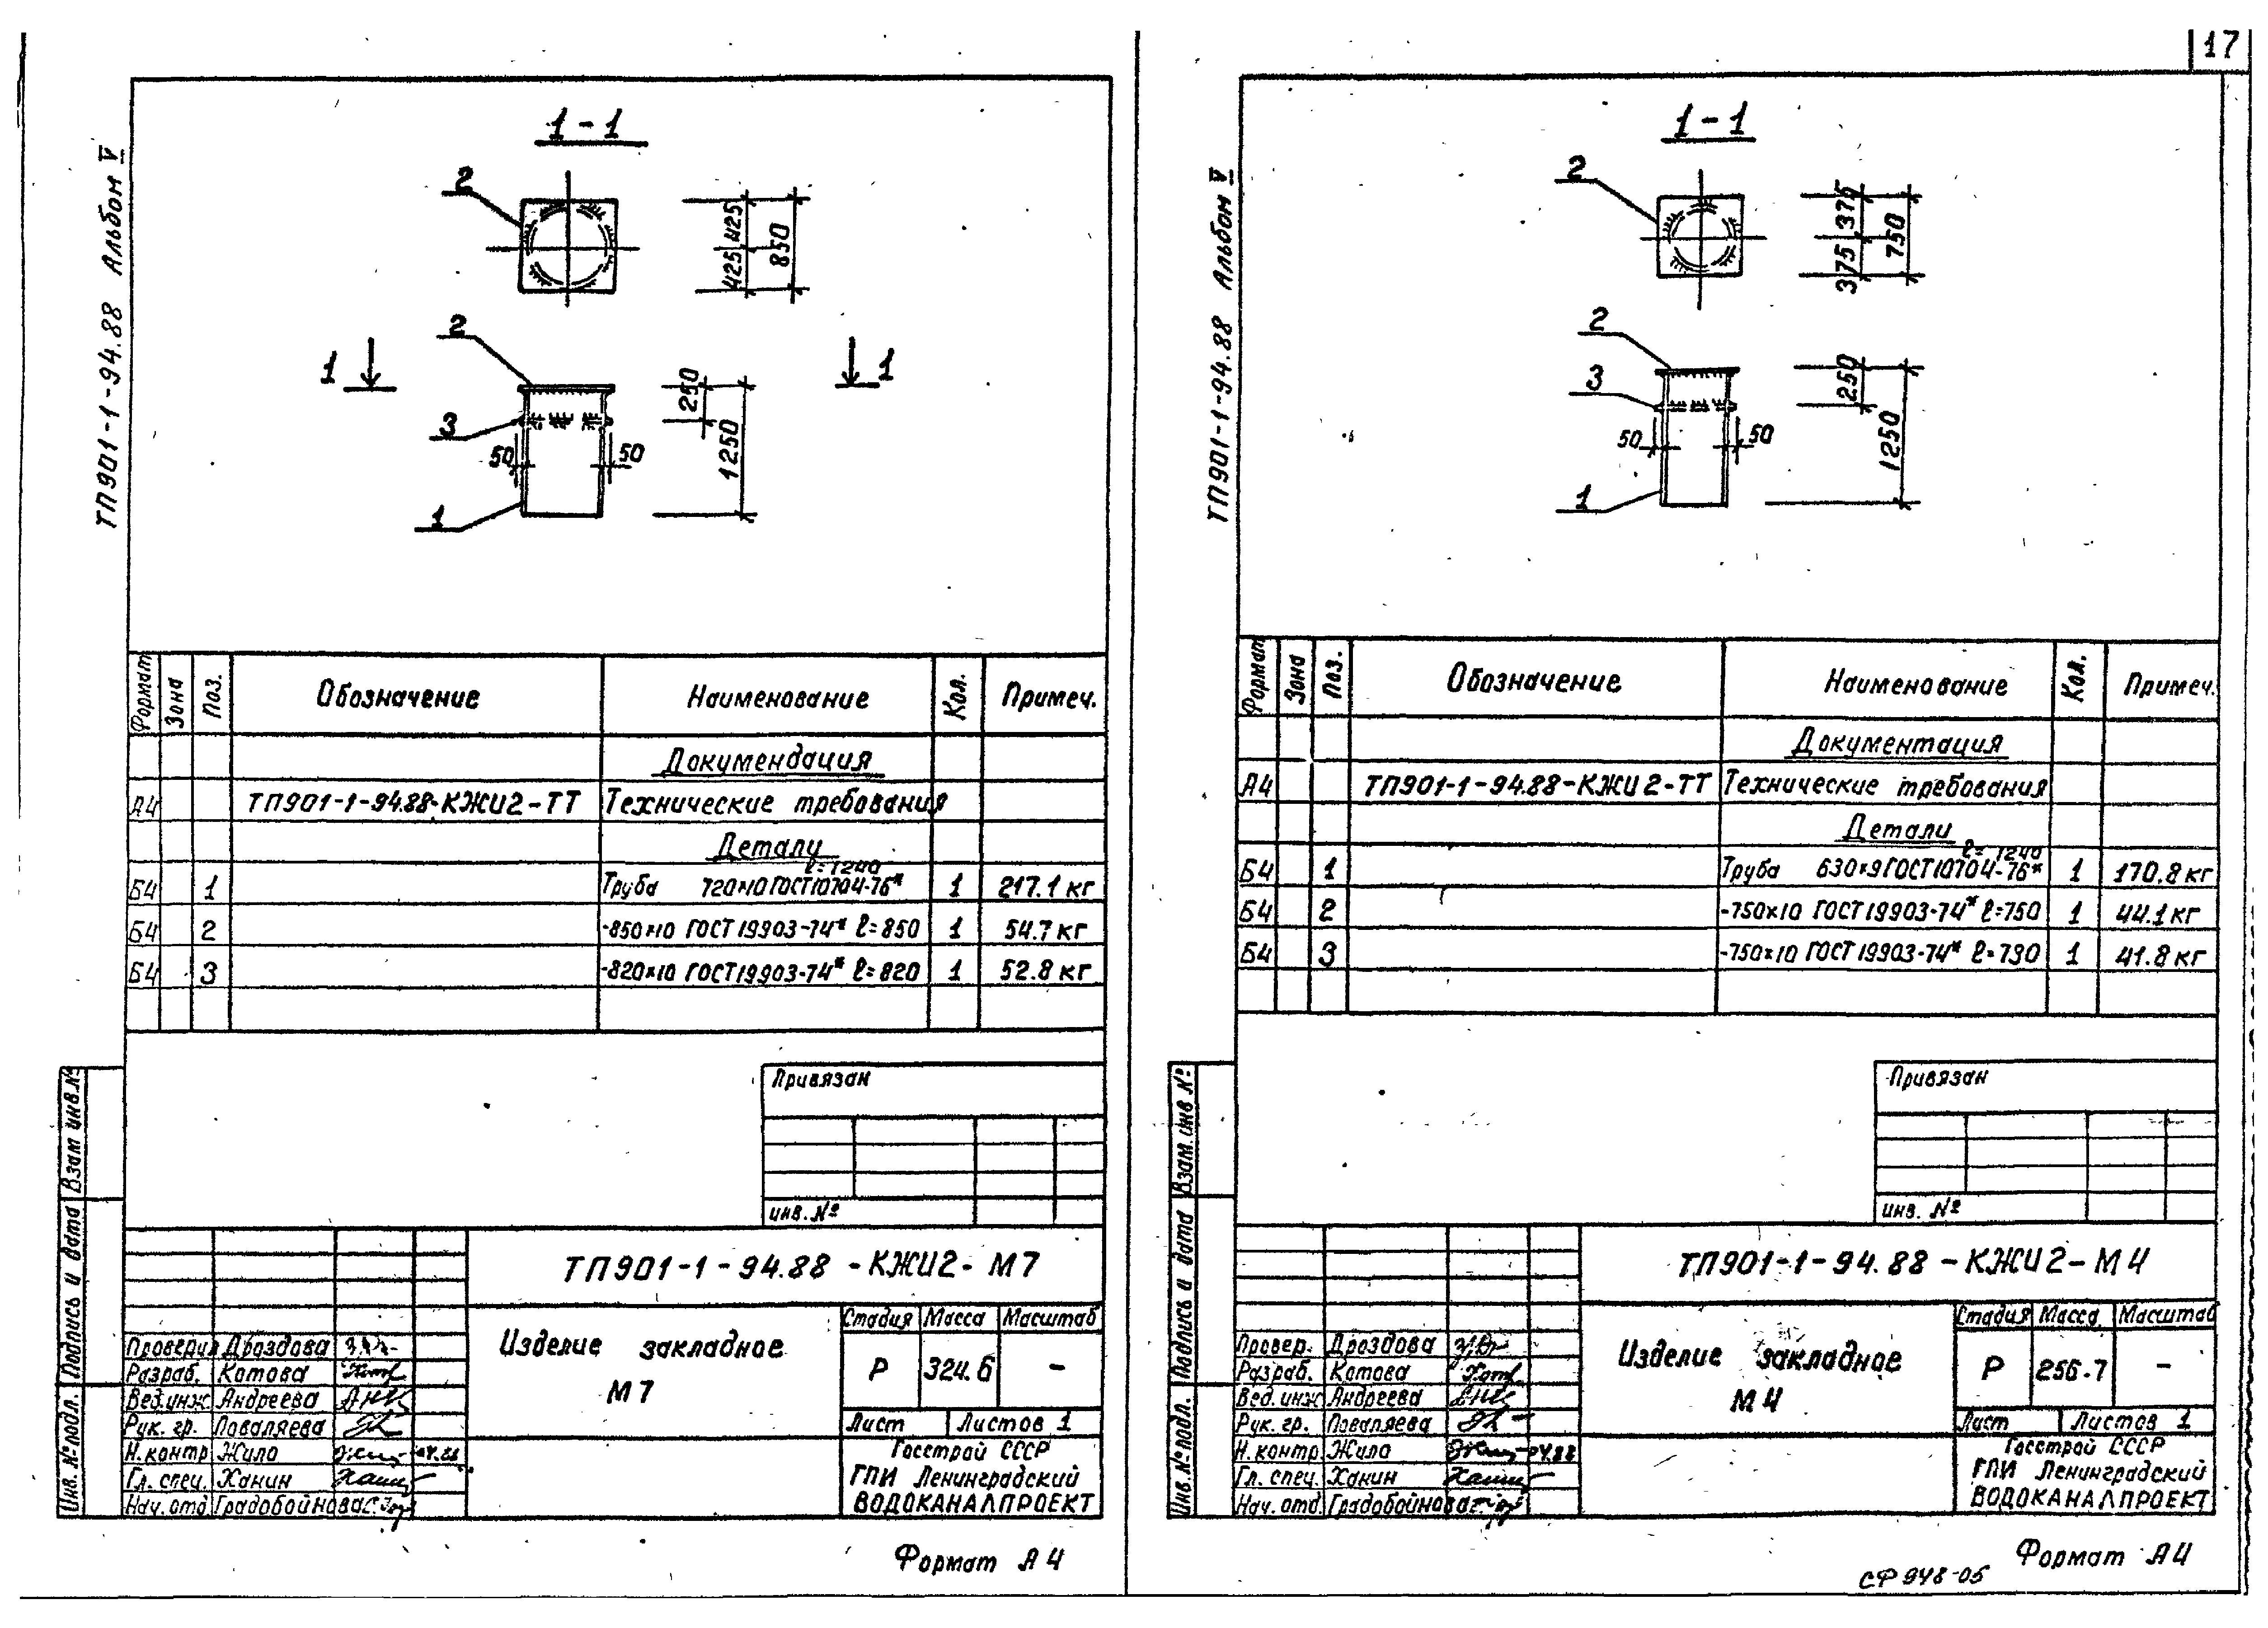 17
ТП901-1-94.88 Альбом V
1-1
2
425 425
850
1 1
2
3
250
1250
50 50
1
Формат Зона Поз. Обозначение Наименование Кол. Примеч.
Докумендация
А4 ТП901-1-94.88-КЖИ2-ТТ Технические требования
Детали
ℓ=1240
Б4 1 Труба 720×10 ГОСТ10704-76* 1 217.1 кг
Б4 2 -850×10 ГОСТ 19903-74* ℓ=850 1 54.7 кг
Б4 3 -820×10 ГОСТ 19903-74* ℓ=820 1 52.8 кг
Привязан
инв. №
Взам инв.№
Подпись и дата
Инв. № подл.
ТП901-1-94.88-КЖИ2-М7
Изделие закладное
М7
Стадия Масса Масштаб
Р 324.6 -
Лист Листов 1
Госстрой СССР
ГПИ Ленинградский
ВОДОКАНАЛПРОЕКТ
Проверил Дроздова
Разраб. Котова
Вед.инж. Андреева
Рук. гр. Поваляева
Н.контр Жило 04.88
Гл. спец. Ханин
Нач. отд. Градобойнова
Формат А4
ТП901-1-94.88 Альбом V
1-1
2
375 375
750
2
3
250
1250
50 50
1
Формат Зона Поз. Обозначение Наименование Кол. Примеч.
Документация
А4 ТП901-1-94.88-КЖИ2-ТТ Технические требования
Детали
ℓ=1240
Б4 1 Труба 630×9 ГОСТ10704-76* 1 170.8 кг
Б4 2 -750×10 ГОСТ 19903-74* ℓ=750 1 44.1 кг
Б4 3 -750×10 ГОСТ 19903-74* ℓ=730 1 41.8 кг
Привязан
инв. №
Взам. инв №
Подпись и дата
Инв. № подл.
ТП901-1-94.88-КЖИ2-М4
Изделие закладное
М4
Стадия Масса Масштаб
Р 256.7 -
Лист Листов 1
Госстрой СССР
ГПИ Ленинградский
ВОДОКАНАЛПРОЕКТ
Провер. Дроздова
Разраб. Котова
Вед.инж Андреева
Рук. гр. Поваляева
Н.контр Жило 04.88
Гл. спец. Ханин
Нач. отд. Градобойнова
Формат А4
СФ 948-05